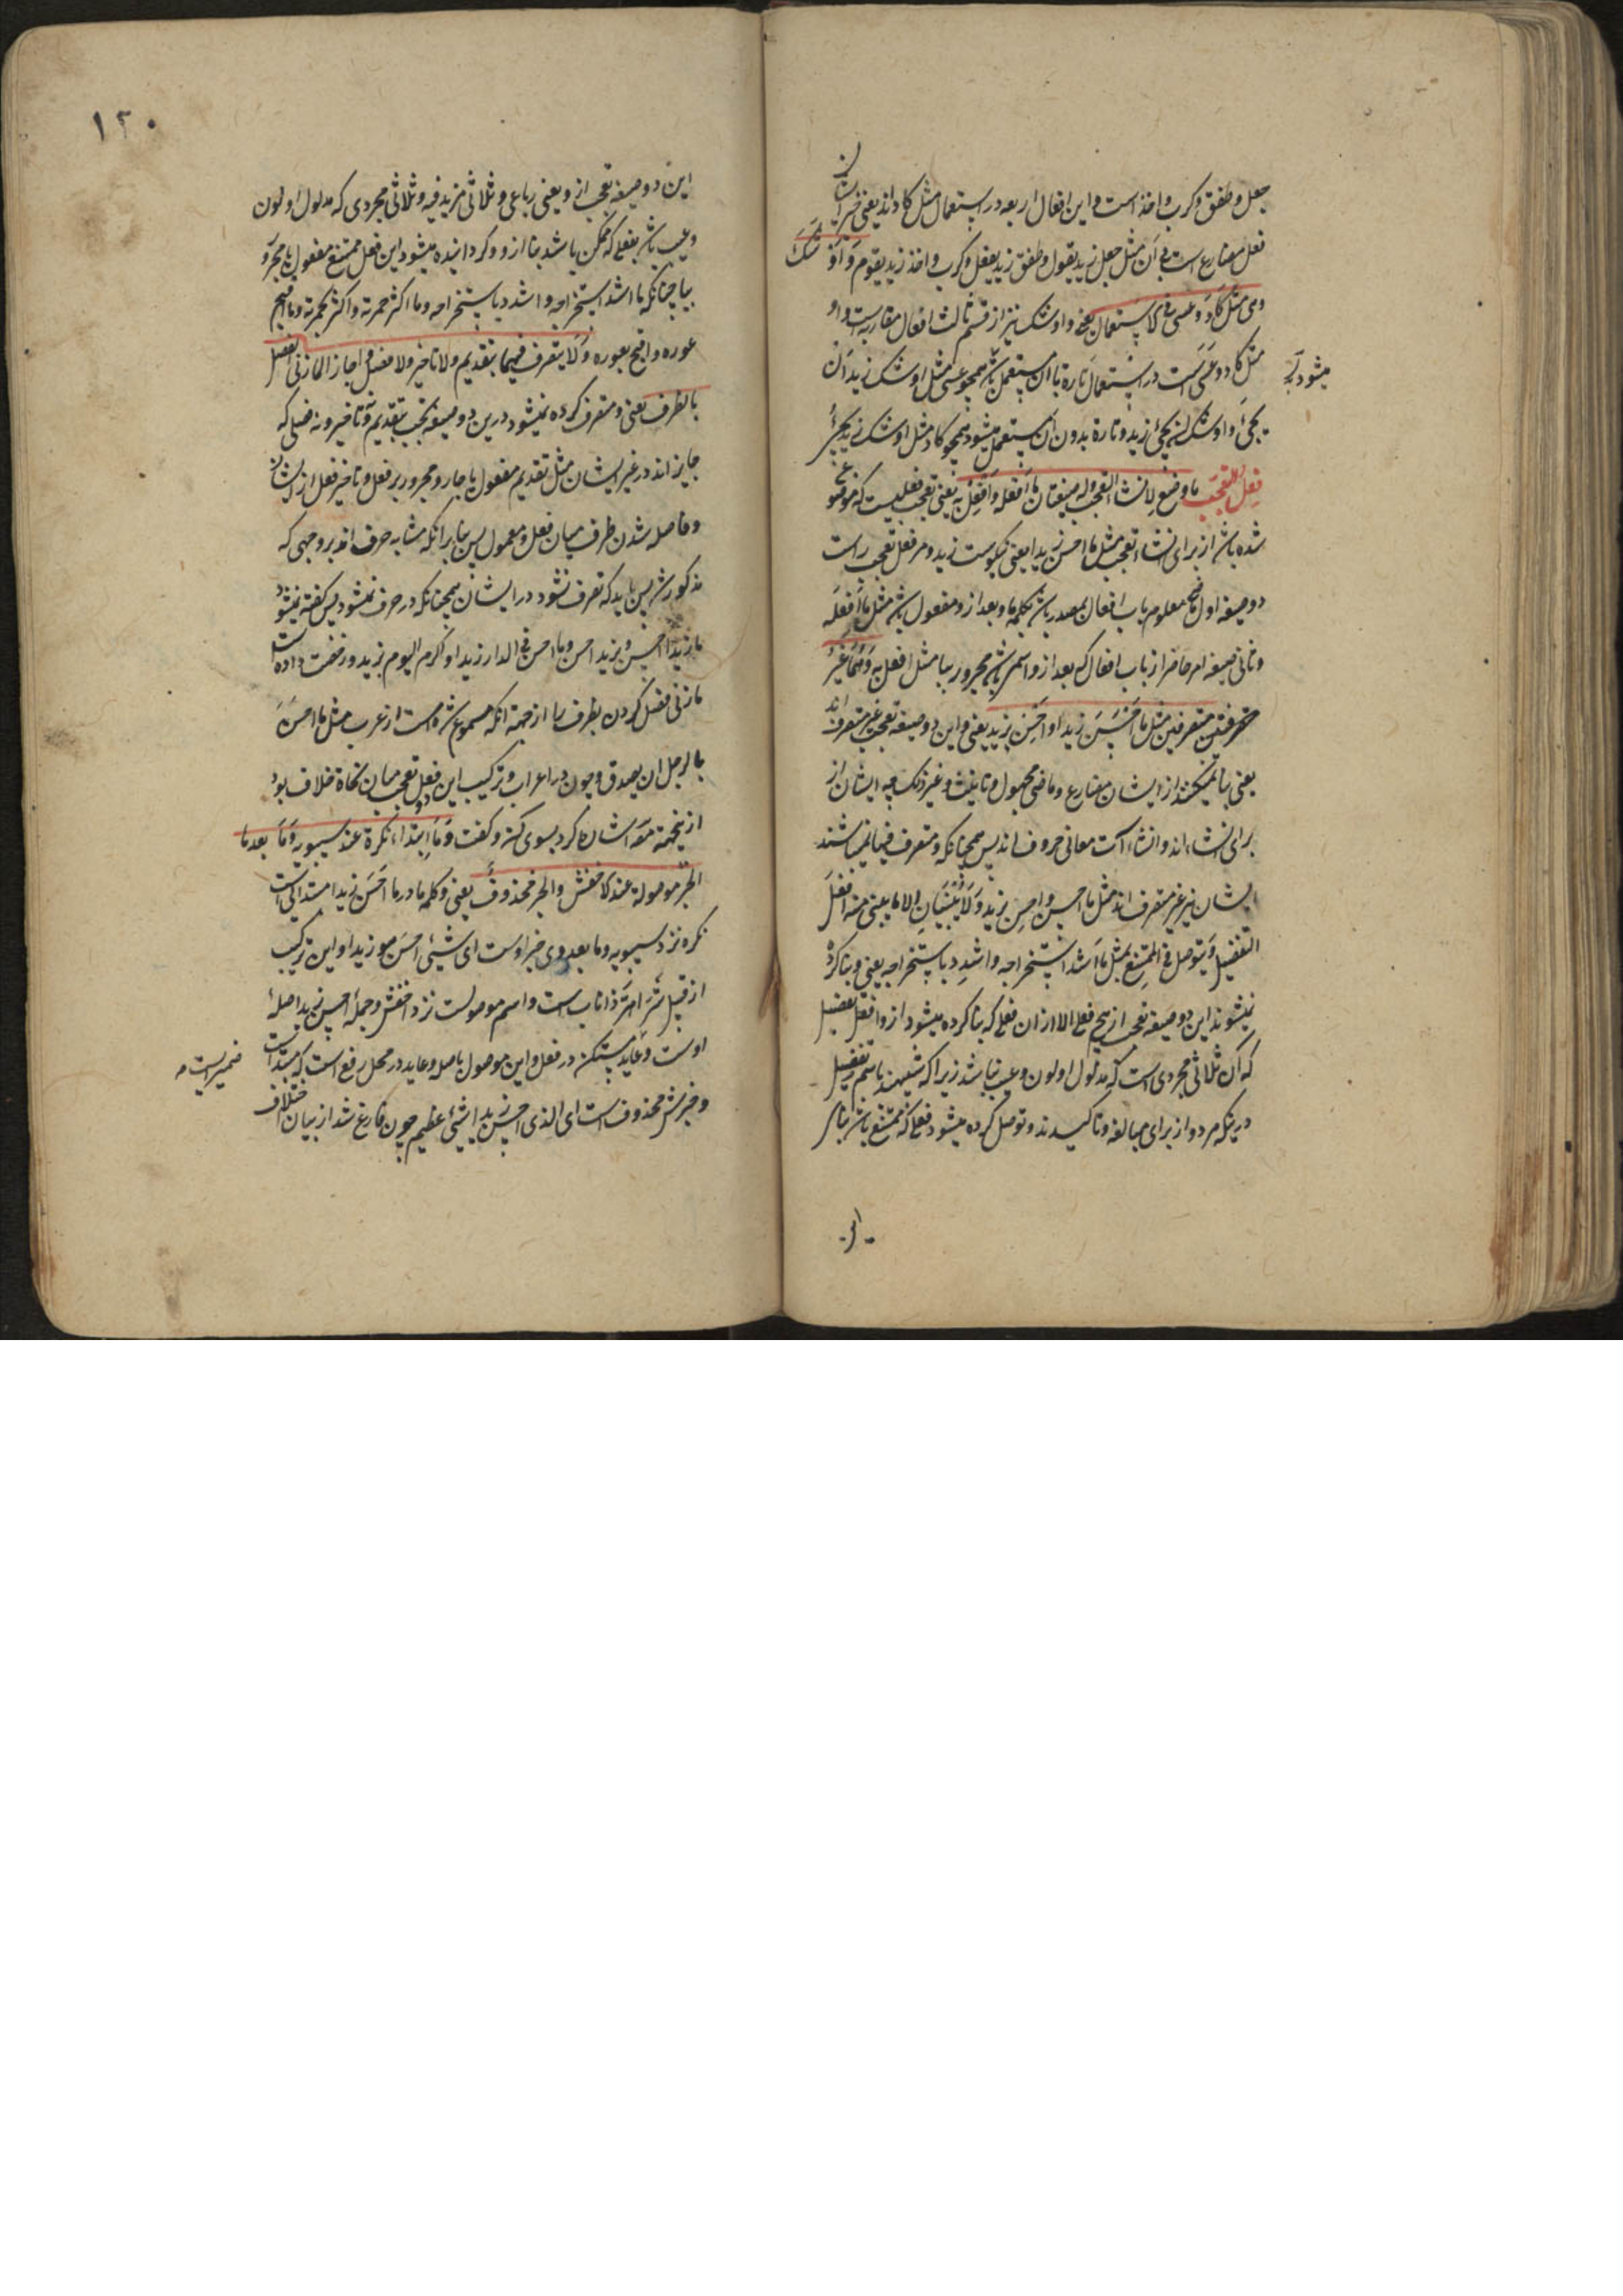 جعل و طفق و کرب و اخذ است و این افعال اربعه در استعمال مثل کاد اند یعنی خبر ایشان
فعل مضارع است بی ان مثل جعل زید یقول و طفق زید یفعل و کرب و اخذ زید یقوم و اوشک
وهی مثل کاد و عسی فی الاستعمال یعنی و اوشک نیز از قسم ثالث افعال مقاربه است و او
مثل کاد و عسی است در استعمال تارة با ان مستعمل میشود همچو عسی مثل اوشک زید ان
یجیٔ و اوشک ان یجیٔ زید و تارة بدون ان مستعمل میشود همچو کاد مثل اوشک زید یجیٔ
فعل التعجب ما وضع لانشاء التعجب وله صیغتان ما افعله و افعل به یعنی تعجب فعلیست که موضوع
شده باشد از برای انشاء تعجب مثل ما احسن زیدا یعنی نیکوست زید و مر فعل تعجب راست
دو صیغه اول ماضی معلوم باب افعال مصدر باشد بکلمه ما و بعد از و مفعول باشد مثل ما افعله
و ثانی صیغه امر حاضر از باب افعال که بعد از و اسم باشد مجرور ببا مثل افعل به و هما غیر
متصرفین مثل ما احسن زیدا و احسن بزید یعنی و این دو صیغه تعجب غیر متصرف اند
یعنی بنا نمیکنند از ایشان مضارع و ماضی مجهول و تانیث و غیر ذلک چه ایشان از
برای انشاء اند و انشاء است معانی حروف اند پس همچنانکه متصرف نمیباشند
ایشان نیز غیر متصرف اند مثل ما احسن و احسن بزید و لا یبنیان الا مما یبنی منه افعل
التفضیل و یتوصل فی الممتنع بمثل ما اشد استخراجه و اشدد باستخراجه یعنی و بنا کرده
نمیشوند این دو صیغه تعجب از هیچ فعل الا از ان فعل که بنا کرده میشود از و افعل تفضیل
که آن ثلاثی مجردی است که مدلول او لون و عیب نباشد زیرا که شبیهند باسم تفضیل
درینکه هر دو از برای مبالغه و تاکیدند و توصل کرده میشود فعلی که ممتنع باشد بنای
میشود
این دو صیغه تعجب از و یعنی رباعی و ثلاثی مزید فیه و ثلاثی مجردی که مدلول او لون
و عیب باشد بفعلی که ممکن باشد بنا از و و گردانیده میشود این فعل ممتنع مفعول یا مجرور
ببا چنانکه ما اشد استخراجه و اشدد باستخراجه و ما اکثر حمرته و اکثر بحمرته و ما اقبح
عوره و اقبح بعوره و لا یتصرف فیهما بتقدیم ولا تاخیر ولا فصل و اجاز المازنی الفصل
بالظرف یعنی و متصرف کرده نمیشود درین دو صیغه تعجب بتقدیم و تاخیر و نه فصلی که
جایز اند در غیر ایشان مثل تقدیم مفعول یا جار و مجرور بر فعل و تاخیر فعل از ایشان
و فاصله شدن ظرف میان فعل و معمول پس بنابر انکه مشابه حرف اند بر وجهی که
مذکور شد پس باید که تصرف نشود در ایشان همچنانکه در حرف نمیشود پس گفته نمیشود
ما زیدا احسن و بزید احسن و ما احسن فی الدار زیدا و اکرم الیوم بزید و رخصت داده است
مازنی فصل کردن بظرف را از جهة انکه مسموع شده است از عرب مثل ما احسن
بالرجل ان یصدق و چون در اعراب و ترکیب این دو فعل تعجب میان نحاة خلاف بود
ازینجهة مص اشاره کرد بسوی آن و گفت و ما ابتداء نکرة عند سیبویه و ما بعدها
الخبر موصولة عند الاخفش والخبر محذوف یعنی و کلمه ما در ما احسن زیدا مبتدائی است
نکره نزد سیبویه و ما بعد وی خبر اوست ای شیئ احسن هو زیدا و این ترکیب
از قبیل شر اهر ذا ناب است و اسم موصولست نزد اخفش و جملهٔ احسن زیدا صلهٔ
اوست و عاید مستکن در فعل و این موصول باصله و عاید در محل رفع است که مبتدا است
و خبرش محذوفست ای الذی احسن زیدا شیئ عظیم چون فارغ شد از بیان اختلاف
ضمیریست
۱۲۰